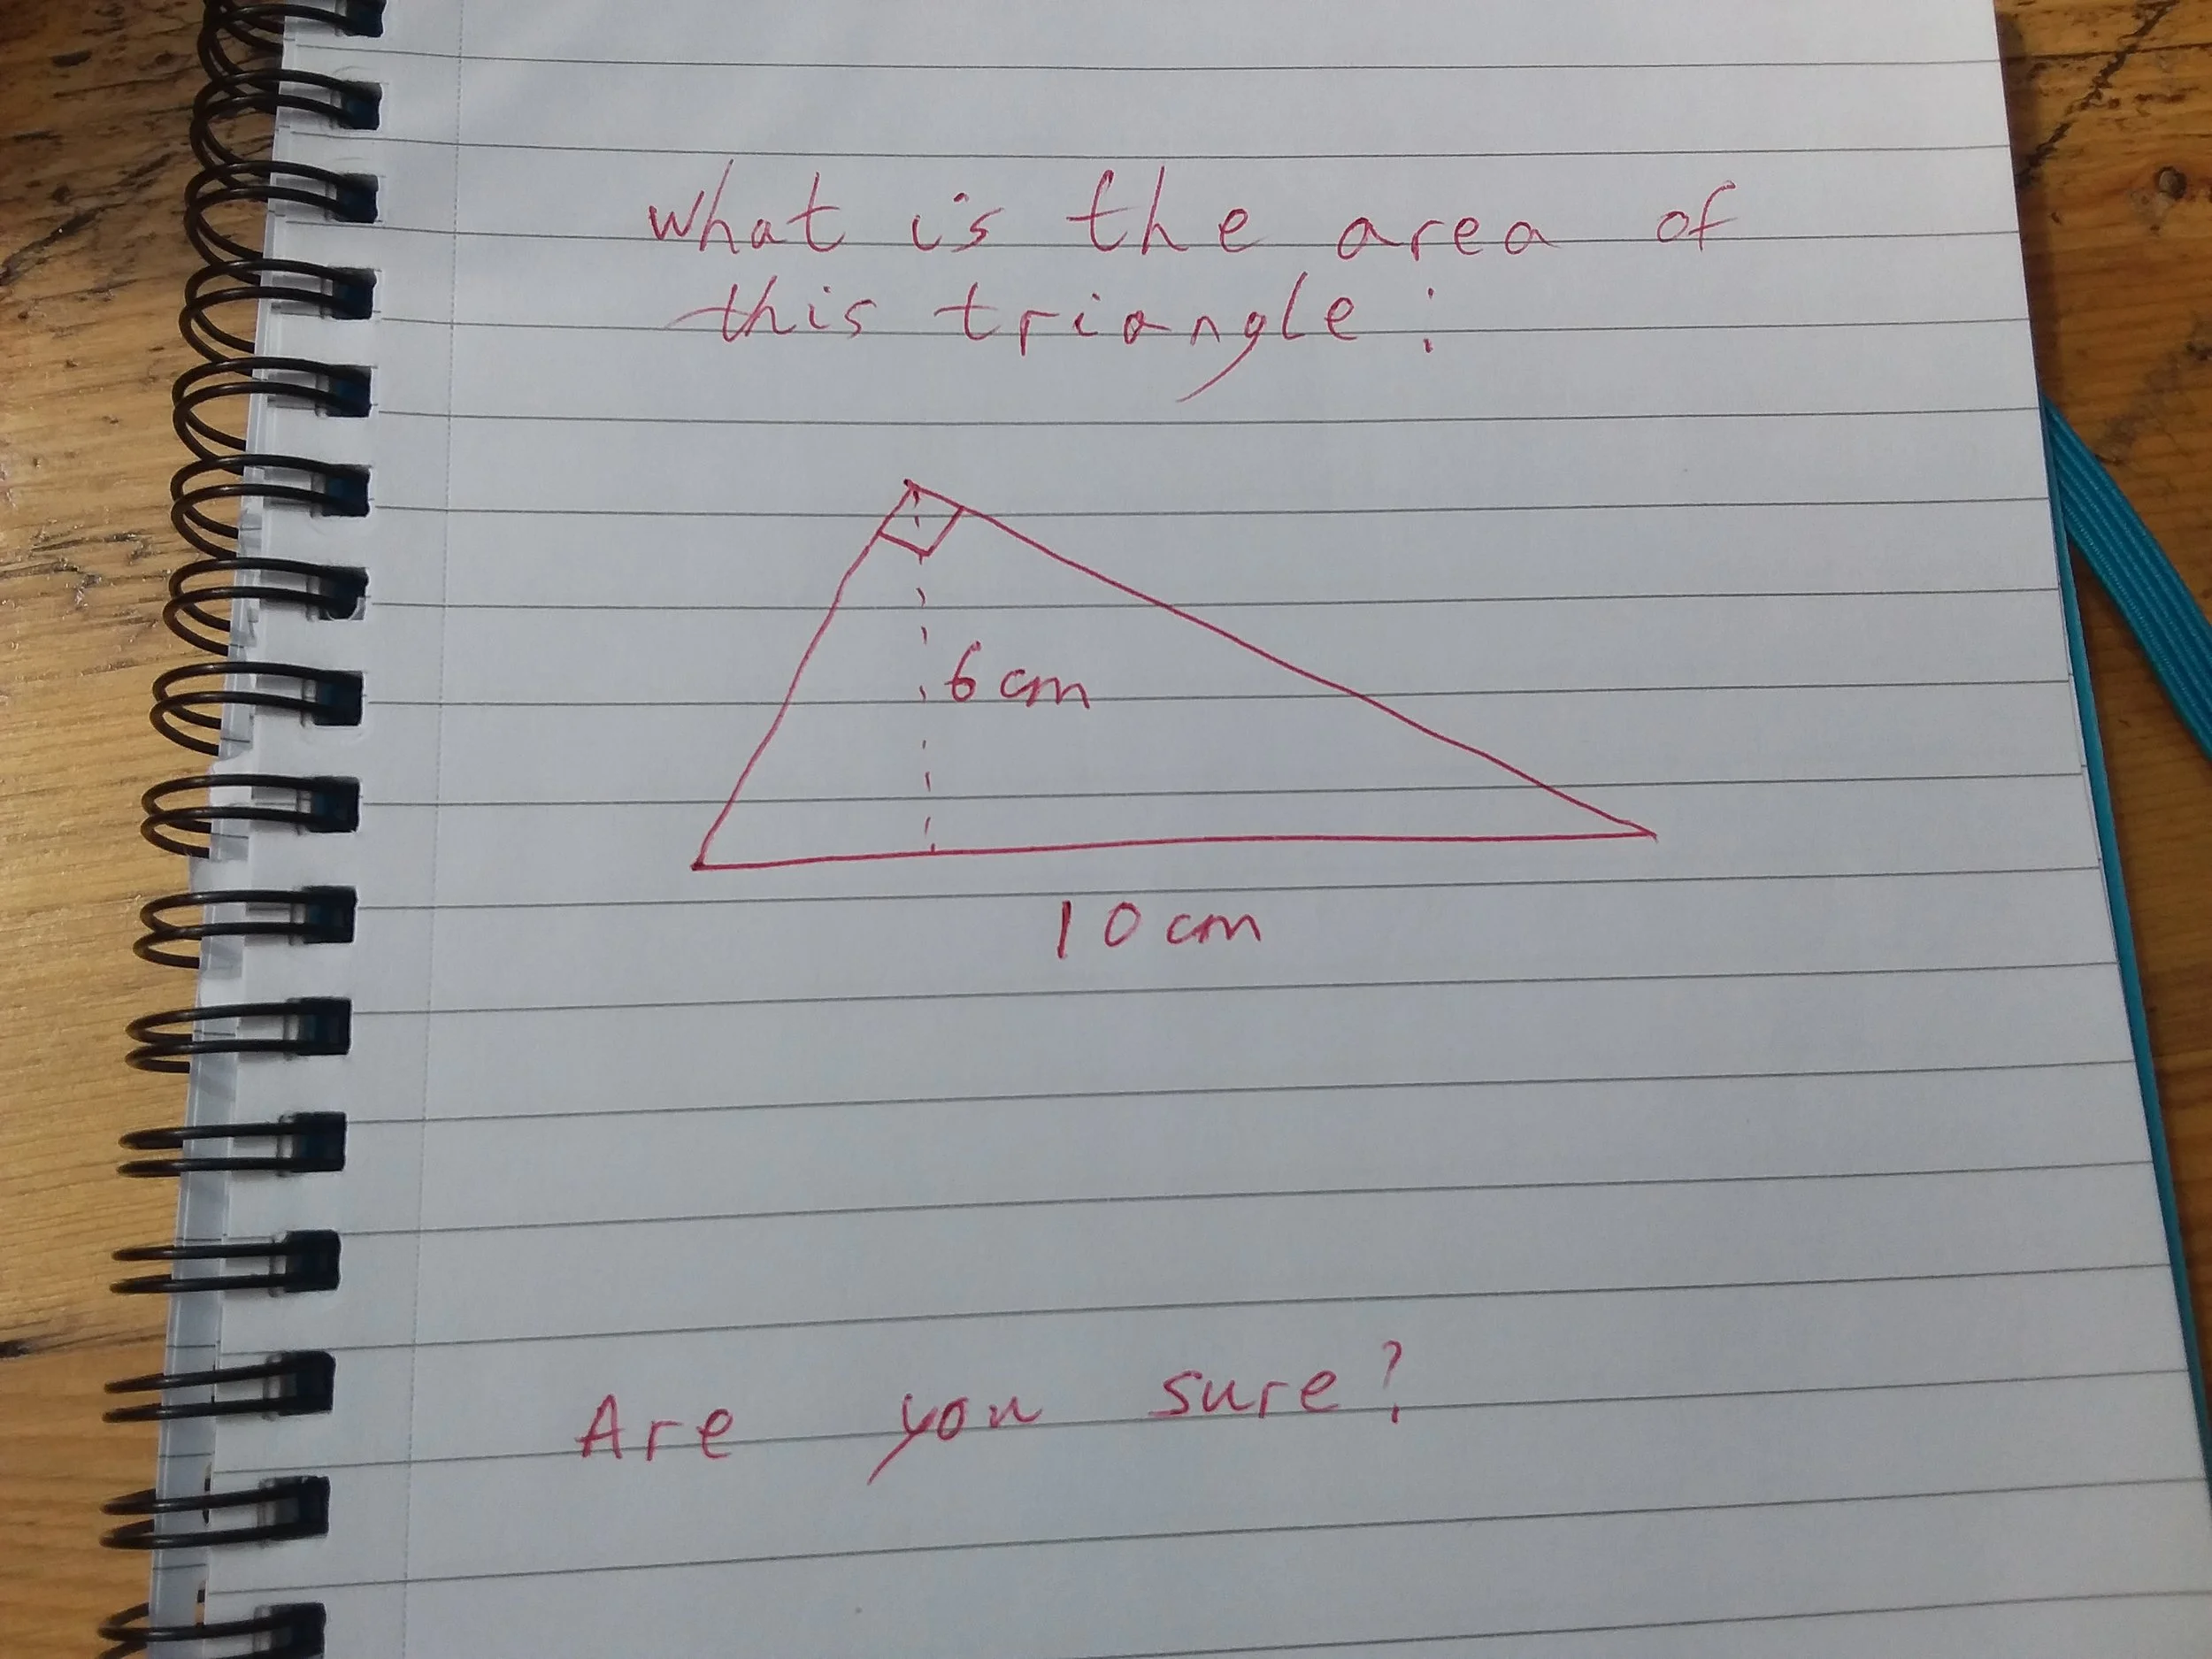 What is the area of
this triangle:
6 cm
10 cm
Are you sure?